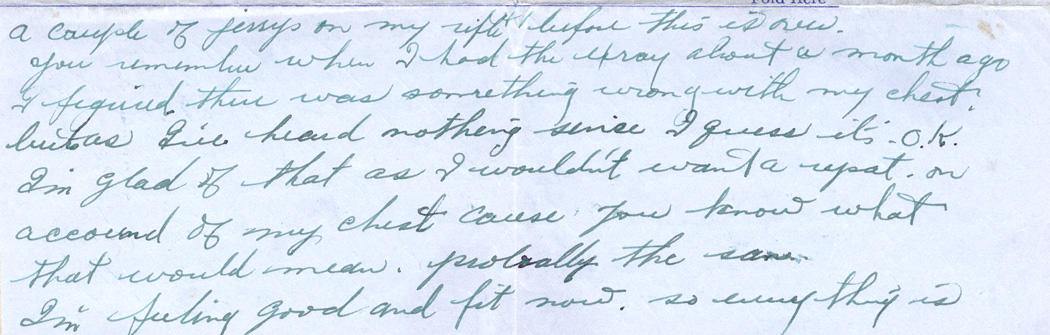 Fold Here
a couple of jerrys on my rifle before this is over.
you remember when I had the xray about a month ago
I figured there was something wrong with my chest.
but as I've heard nothing sinse I guess it's O.K.
I'm glad of that as I wouldn't want a repat. on
accound of my chest cause you know what
that would mean. probally the san.
I'm feeling good and fit now. so every thig is